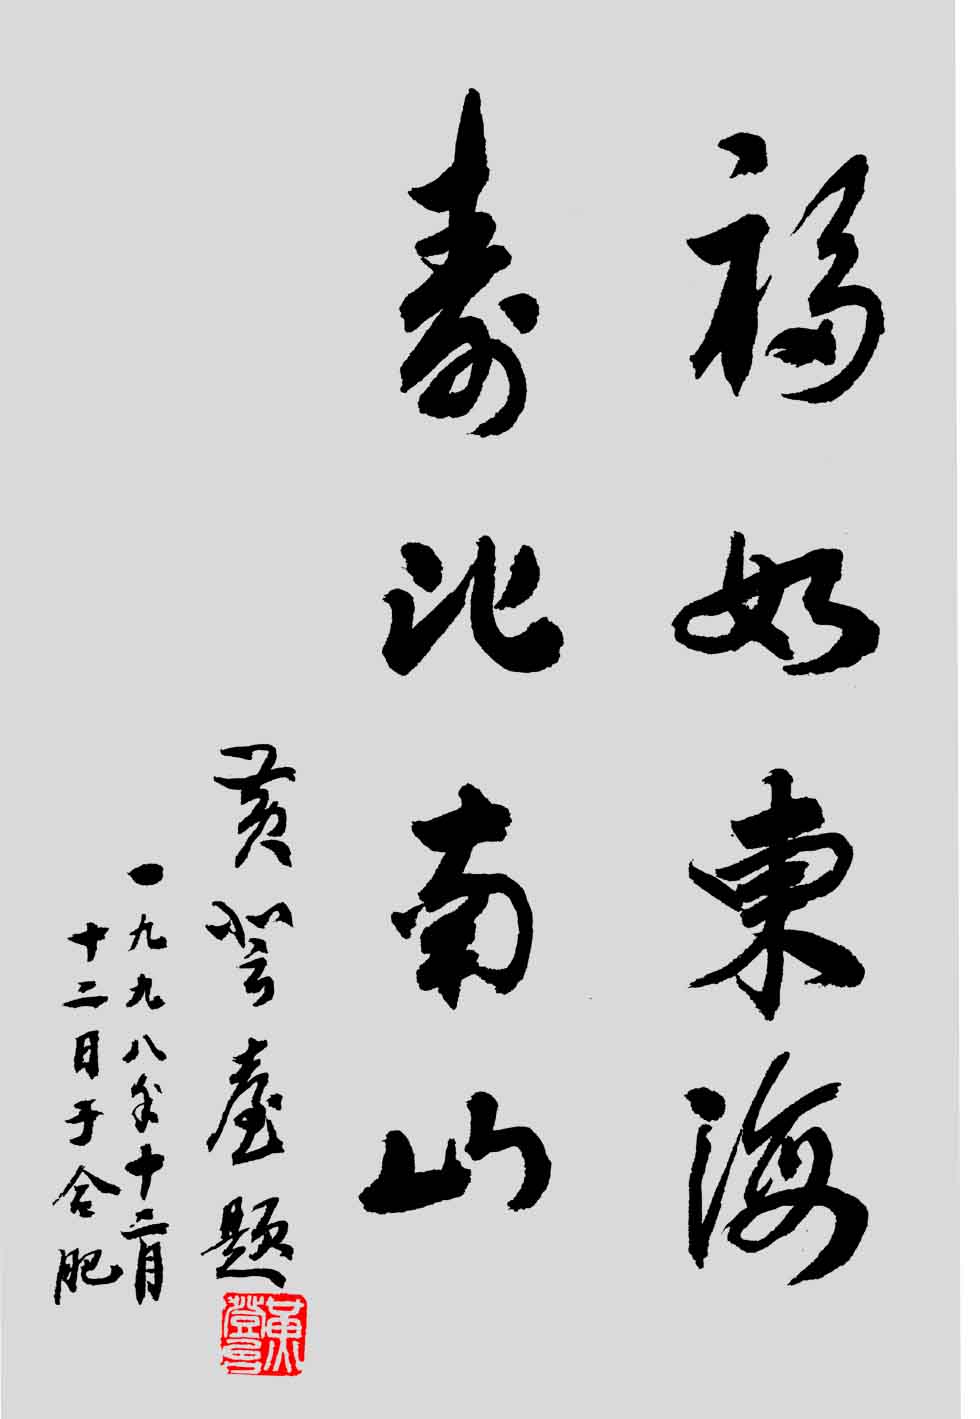 福如東海
寿比南山
黄臺題
一九九八年十二月
十二日于合肥
黄